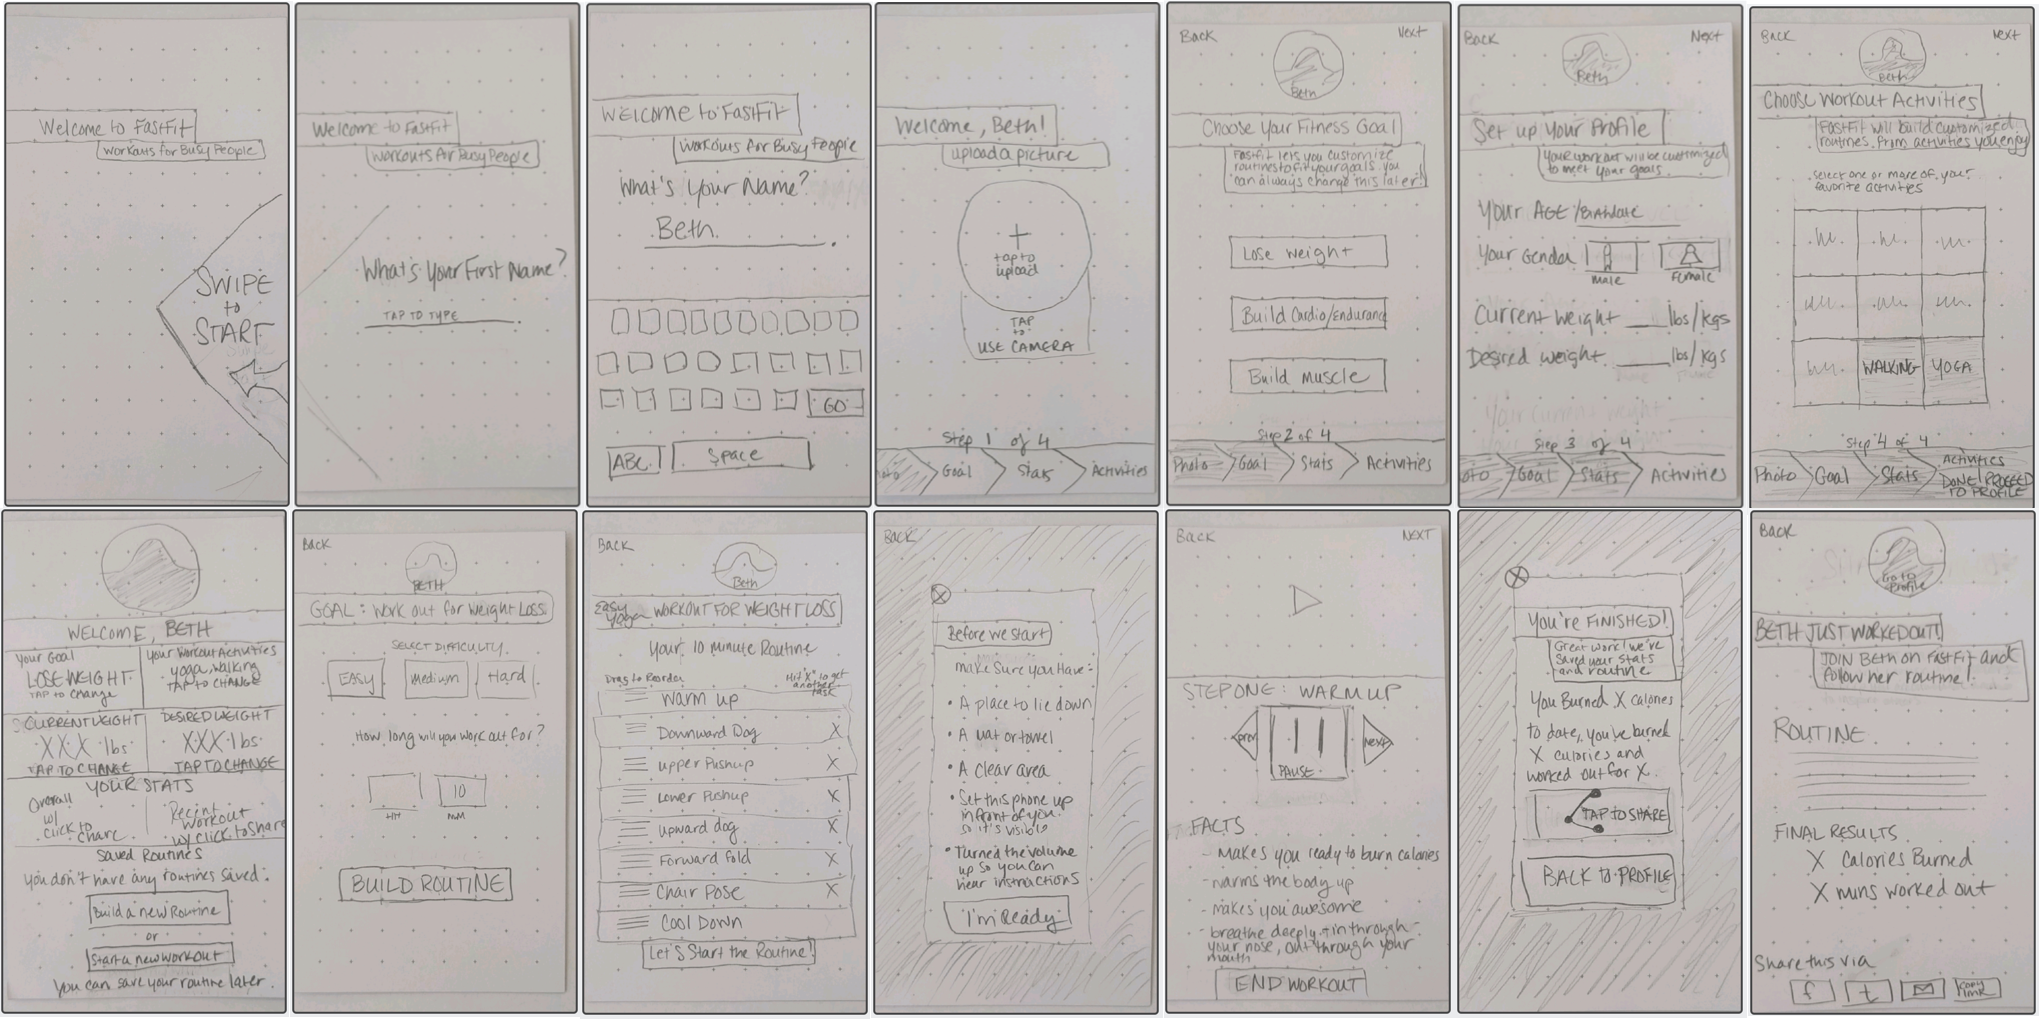 Welcome to FastFit
Workouts for Busy People
SWIPE
to
START
Welcome to FastFit
Workouts for Busy People
What's Your First Name?
TAP TO TYPE
WELCOME to FASTFit
Workouts for Busy People
What's Your Name?
Beth.
GO
ABC
Space
Welcome, Beth!
upload a picture
+
tap to
upload
TAP
to
USE CAMERA
Step 1 of 4
Goal
Stats
Activities
Back
Next
Beth
Choose Your Fitness Goal
Fastfit lets you customize
routines to fit your goals. You
can always change this later!
Lose weight
Build Cardio/Endurance
Build muscle
Step 2 of 4
Photo
Goal
Stats
Activities
Back
Next
Beth
Set up Your Profile
Your workout will be customized
to meet your goals.
Your AGE/Birthdate
Your Gender
male
Female
Current weight ___ lbs/kgs
Desired weight ___ lbs/kgs
Step 3 of 4
oto
Goal
Stats
Activities
Back
Next
Beth
Choose Workout Activities
FastFit will build customized
routines from activities you enjoy
Select one or more of your
favorite activities
WALKING
YOGA
Step 4 of 4
Photo
Goal
Stats
Activities
DONE! PROCEED
TO PROFILE
WELCOME, BETH
Your Goal
LOSE WEIGHT
TAP to change
Your Workout Activities
yoga, walking
TAP TO CHANGE
CURRENT WEIGHT
XXX lbs
TAP TO CHANGE
DESIRED WEIGHT
XXX lbs
TAP TO CHANGE
YOUR STATS
Overall
w/
click to
share
Recent
workout
w/ click to share
Saved Routines
You don't have any routines saved.
Build a new Routine
or
Start a new workout
You can save your routine later.
Back
BETH
GOAL: Work out for Weight Loss
SELECT DIFFICULTY
EASY
Medium
Hard
How long will you work out for?
10
HH
MM
BUILD ROUTINE
Back
Beth
Easy
Yoga
WORKOUT FOR WEIGHT LOSS
Your 10 minute Routine
Drag to Reorder
Hit "X" to get
another
task
Warm up
Downward Dog X
upper Pushup X
Lower Pushup X
upward dog X
Forward fold X
Chair Pose X
Cool Down
Let's Start the Routine!
Back
X
Before we start
make Sure you Have:
• A place to lie down
• A mat or towel
• A clear area
• Set this phone up
in front of you
so it's visible
• Turned the volume
up so you can
hear instructions
I'm Ready
Back
NEXT
STEP ONE: WARM UP
prev
PAUSE
Next
FACTS
- Makes you ready to burn calories
- warms the body up
- makes you awesome
- breathe deeply - in through
your nose, out through your
mouth
END WORKOUT
X
You're FINISHED!
Great work! We've
saved your stats
and routine.
You Burned X calories
to date, you've burned
X calories and
worked out for X.
TAP TO SHARE
BACK to PROFILE
Back
Go to
Profile
BETH JUST WORKED OUT!
JOIN Beth on FastFit and
follow her routine!
ROUTINE
FINAL RESULTS
X Calories Burned
X mins worked out
Share this via
f
t
copy
link